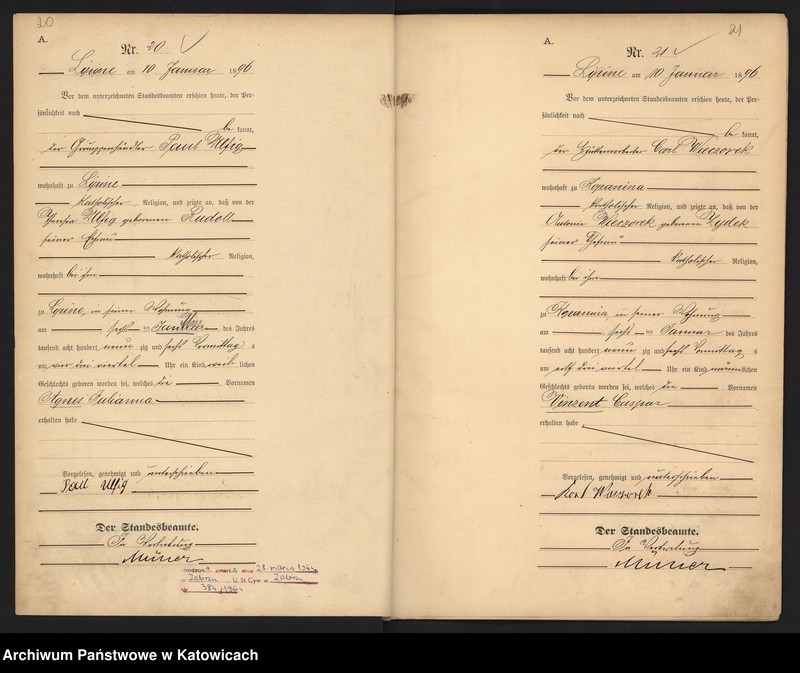 20
A.
Nr. 20
Lipine am 10 Januar 1896
Vor dem unterzeichneten Standesbeamten erschien heute, der Per-
sönlichkeit nach
be kannt,
der Paul Ulfig
wohnhaft zu Lipine
katholischer Religion, und zeigte an, daß von der
Ulfig geborenen Rudoll
seiner Ehefrau
katholischer Religion,
wohnhaft bei ihm
zu Lipine in seiner Wohnung
am sechs ten Januar des Jahres
tausend acht hundert neun zig und sechs Vormittag s
um drei viertel Uhr ein Kind weib lichen
Geschlechts geboren worden sei, welches die Vornamen
Agnes Julianna
erhalten habe
Vorgelesen, genehmigt und unterschrieben
Paul Ulfig
Der Standesbeamte.
In Vertretung
21. marca 1964
Zabrzu U.St.Cyw. w Zabrzu
384/1964
21
A.
Nr. 21
Lipine am 10 Januar 1896
Vor dem unterzeichneten Standesbeamten erschien heute, der Per-
sönlichkeit nach
be kannt,
der Hüttenarbeiter Carl Wieczorek
wohnhaft zu Kopanina
katholischer Religion, und zeigte an, daß von der
Antonie Wieczorek geborenen Zydek
seiner Ehefrau
katholischer Religion,
wohnhaft bei ihm
zu Kopanina in seiner Wohnung
am sechs ten Januar des Jahres
tausend acht hundert neun zig und sechs Vormittag s
um elf drei viertel Uhr ein Kind männlichen
Geschlechts geboren worden sei, welches die Vornamen
Vinzent Caspar
erhalten habe
Vorgelesen, genehmigt und unterschrieben
Der Standesbeamte.
In Vertretung
Archiwum Państwowe w Katowicach